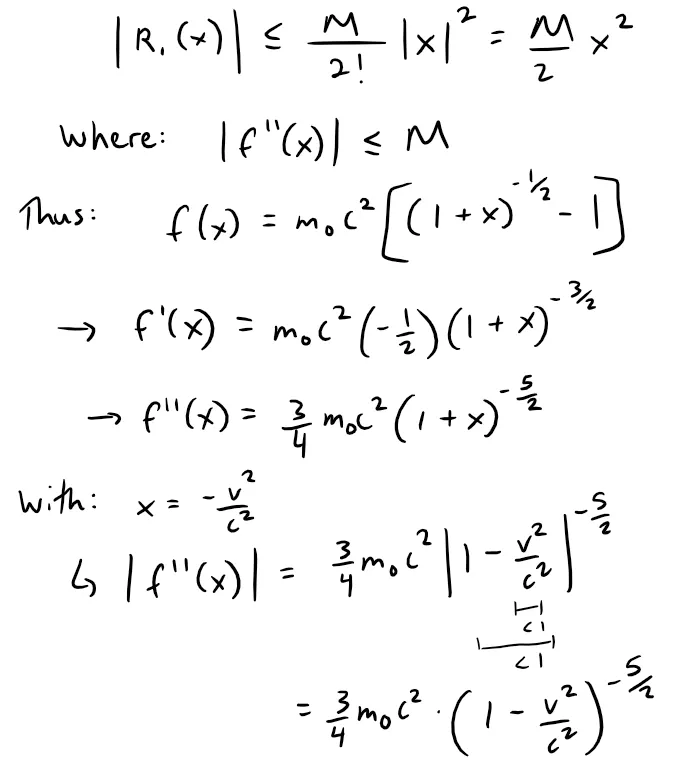 |R₁(x)| ≤ M/2! |x|² = M/2 x²
where: |f''(x)| ≤ M
Thus: f(x) = m₀c²[(1 + x)^(-1/2) - 1]
→ f'(x) = m₀c²(-1/2)(1 + x)^(-3/2)
→ f''(x) = 3/4 m₀c²(1 + x)^(-5/2)
With: x = -v²/c²
↳ |f''(x)| = 3/4 m₀c² |1 - v²/c²|^(-5/2)
<1
<1
= 3/4 m₀c² · (1 - v²/c²)^(-5/2)